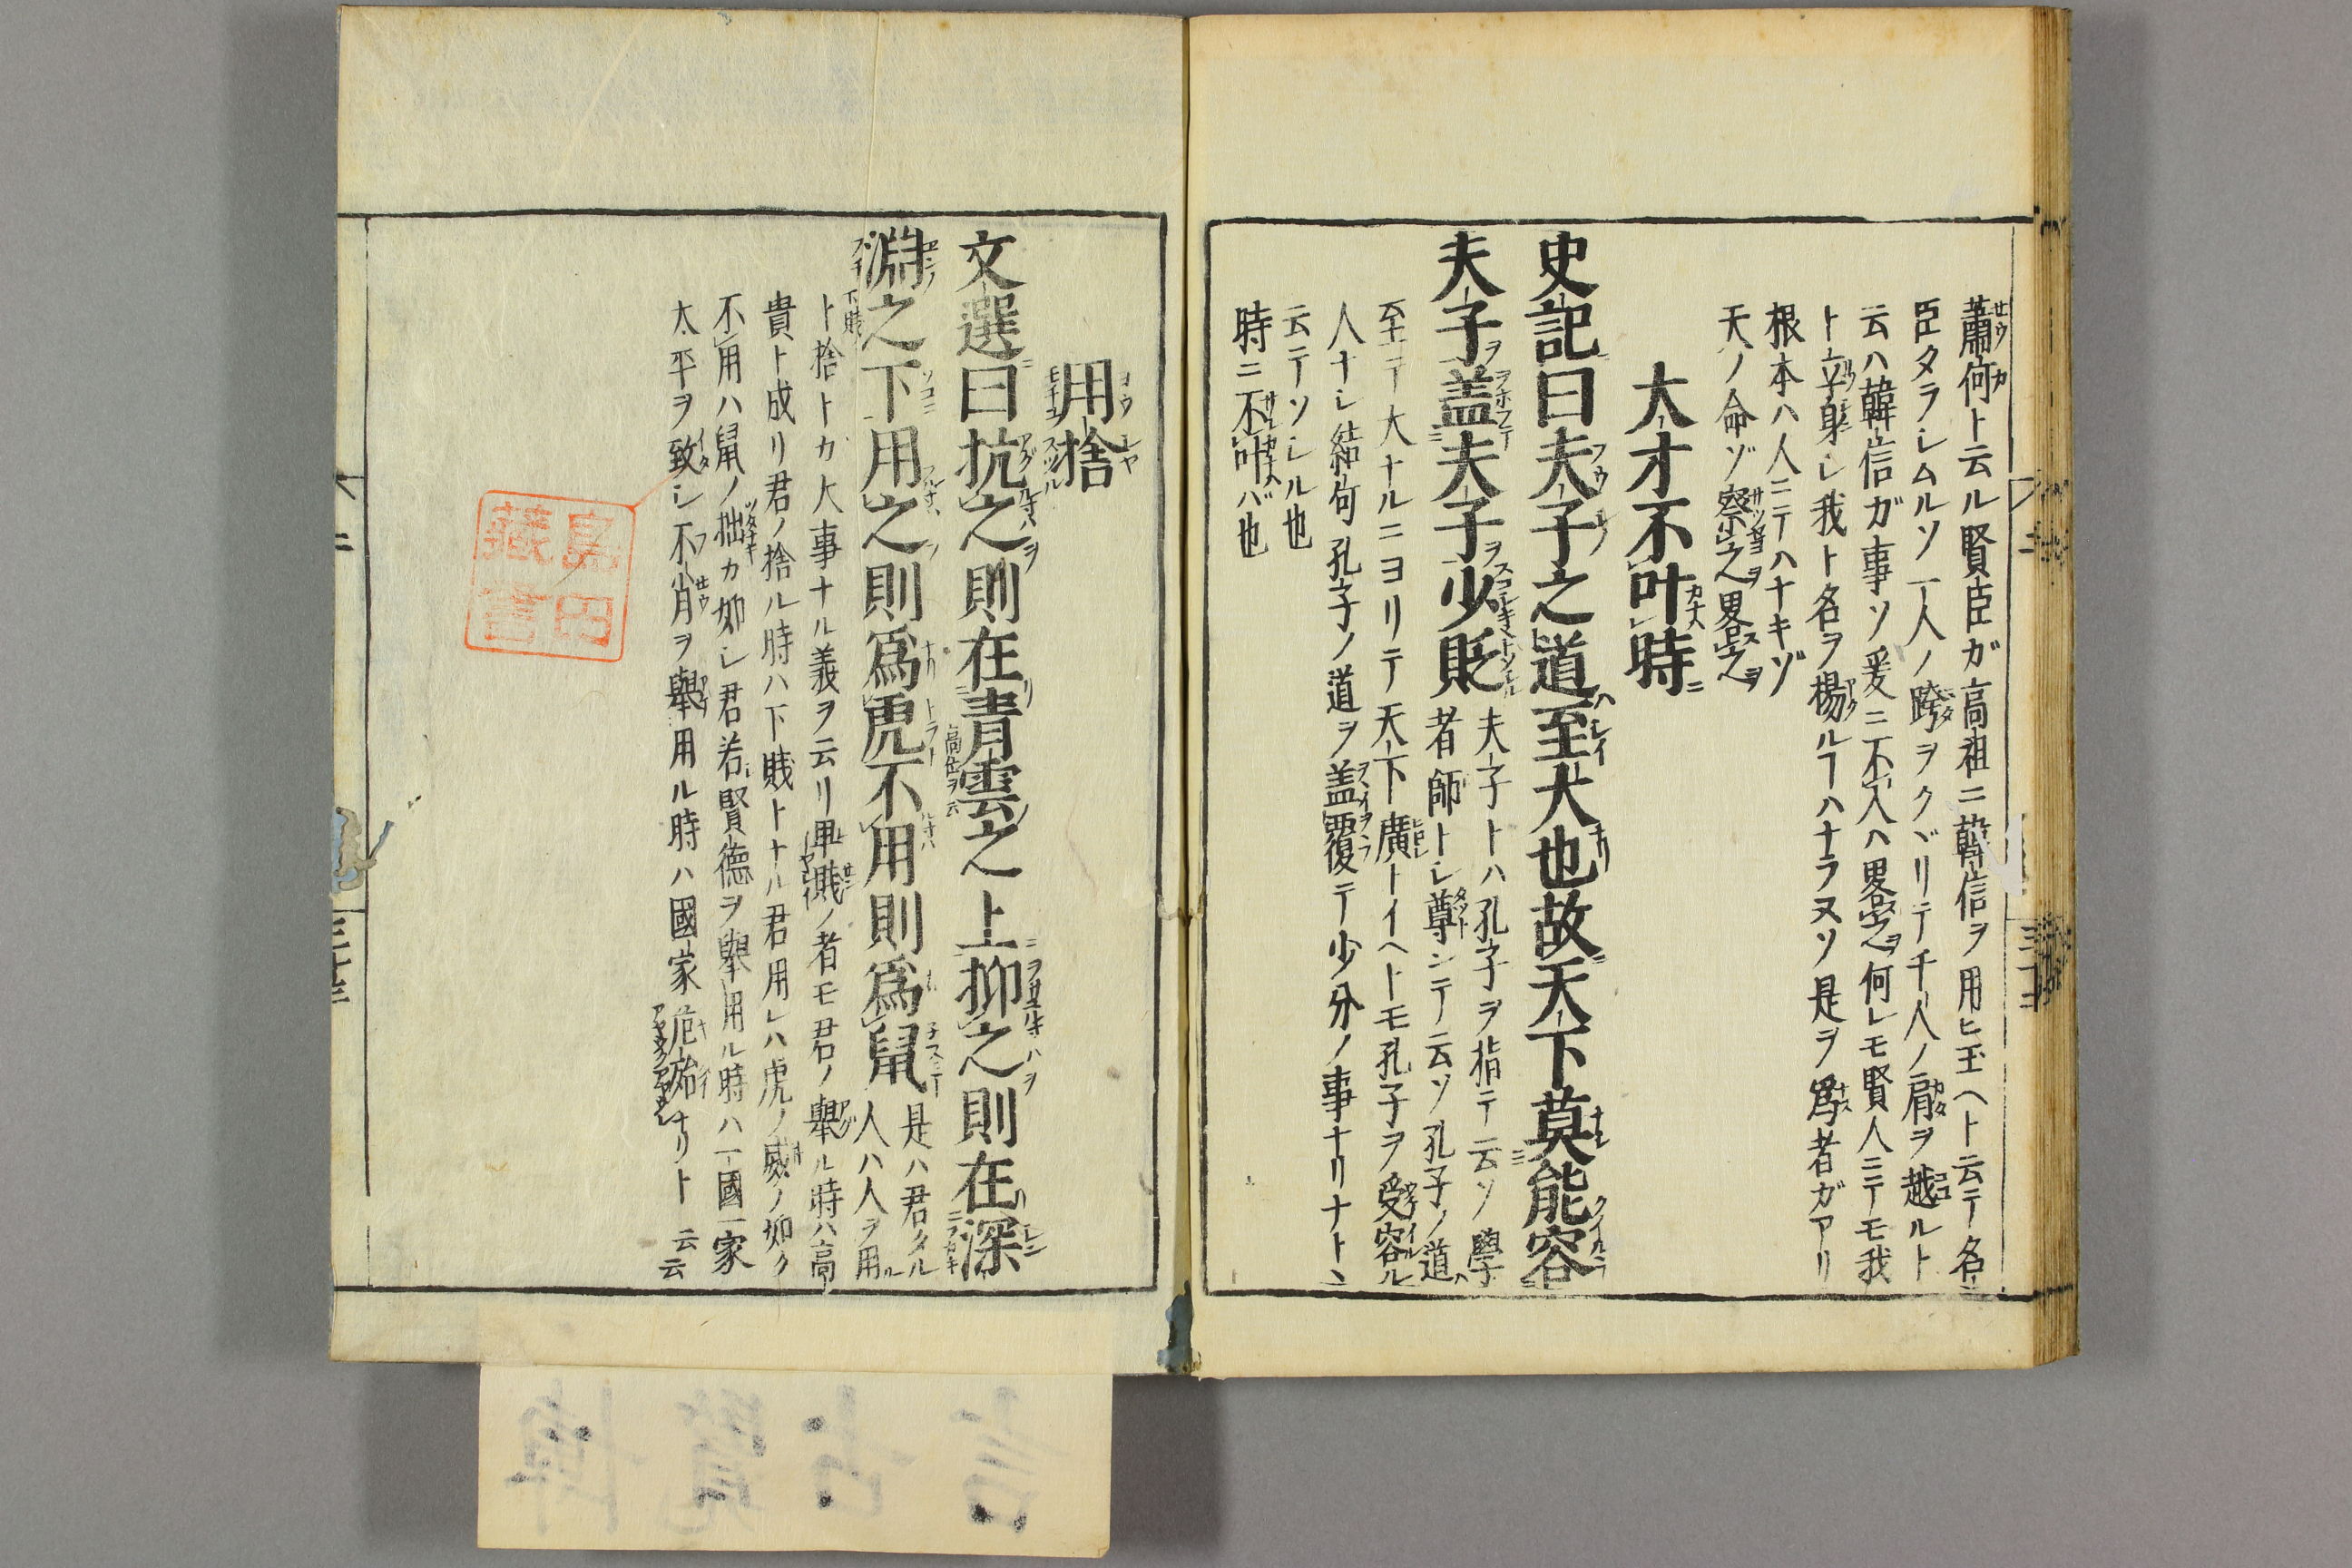 蕭何ト云ル賢臣ガ高祖ニ韓信ヲ用ヒ玉ヘト云テ名
臣タラシムルソ一人ノ跨ヲクヾリテ千人ノ肩ヲ越ルト
云ハ韓信ガ事ソ爰ニ不入ハ畧之何レモ賢人ニテモ我
ト立身シ我ト名ヲ楊ルヿハナラヌソ是ヲ爲者ガアリ
根本ハ人ニテハナキゾ
天ノ命ゾ察之畧之
大才不叶時
史記曰夫子之道至大也故天下莫能容
夫子盖夫子少貶
夫子トハ孔子ヲ指テ云ソ學
者師トシ尊ンテ云ソ孔子ノ道
至テ大ナルニヨリテ天下廣トイヘトモ孔子ヲ受容ル
人ナシ結句孔子ノ道ヲ盖覆テ少分ノ事ナリナトヽ
云テソシル也
時ニ不叶ハ也
用捨
文選曰抗之則在青雲之上抑之則在深
淵之下用之則爲虎不用則爲鼠
是ハ君タル
人ハ人ヲ用ル
ト捨トカ大事ナル義ヲ云リ卑賎ノ者モ君ノ擧ル時ハ高
貴ト成リ君ノ捨ル時ハ下賎トナル君用レハ虎ノ威ノ如ク
不用ハ鼠ノ拙カ如シ君若賢德ヲ擧用ル時ハ一國一家
太平ヲ致シ不肖ヲ擧用ル時ハ國家危殆ナリト云云
三十三
島田
藏書